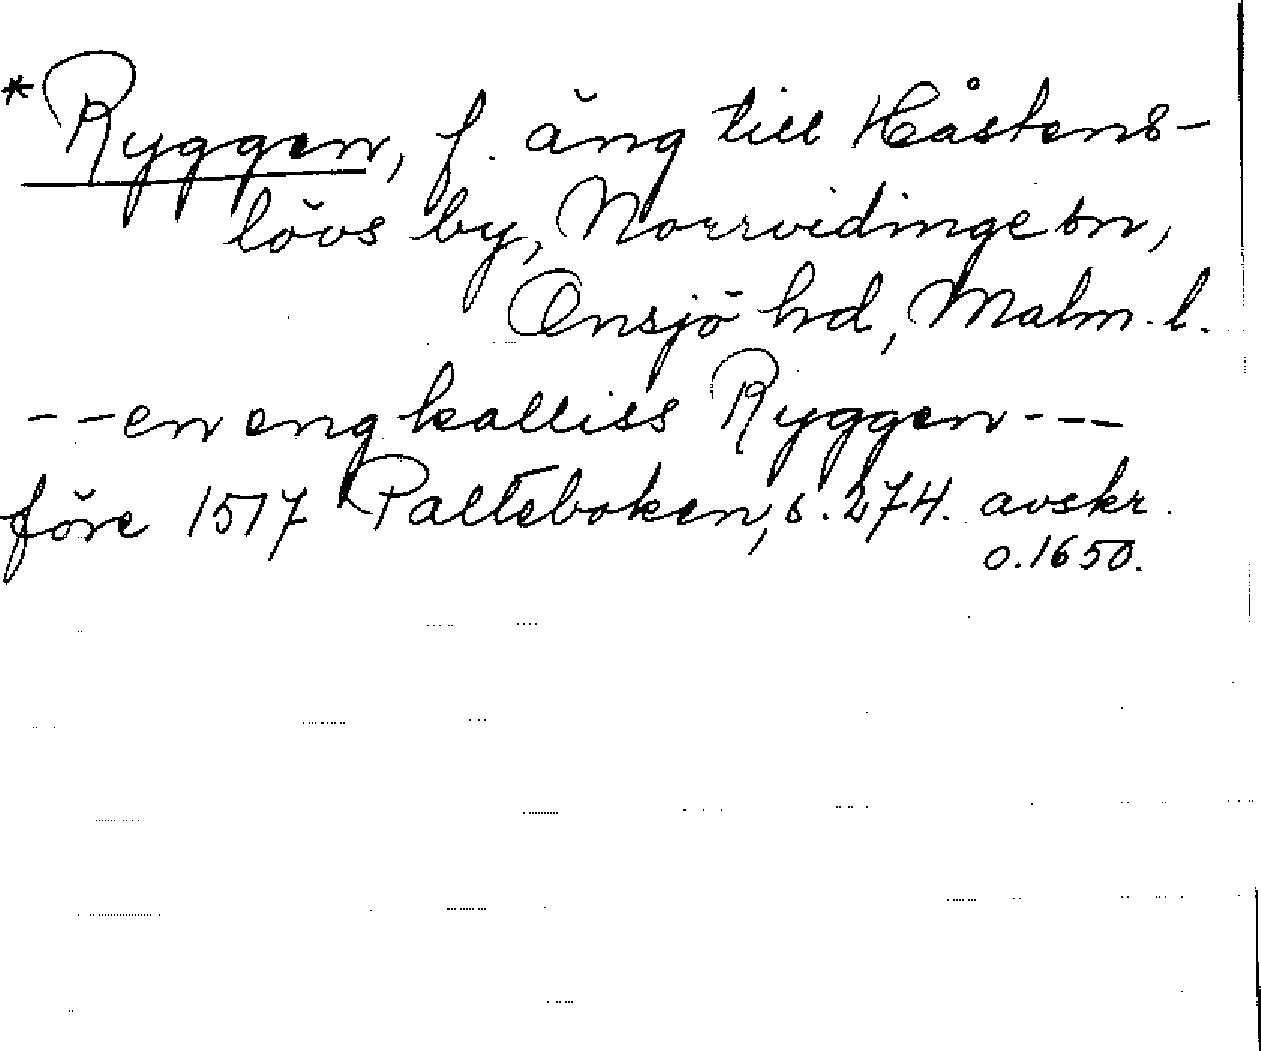 *Ryggen, f. äng till Håstens-
lövs by, Norrvidinge sn,
Onsjö hd, Malm. l.
- - en eng kalliss Ryggen - - -
före 1517 Palteboken, s. 274. avskr.
o. 1650.